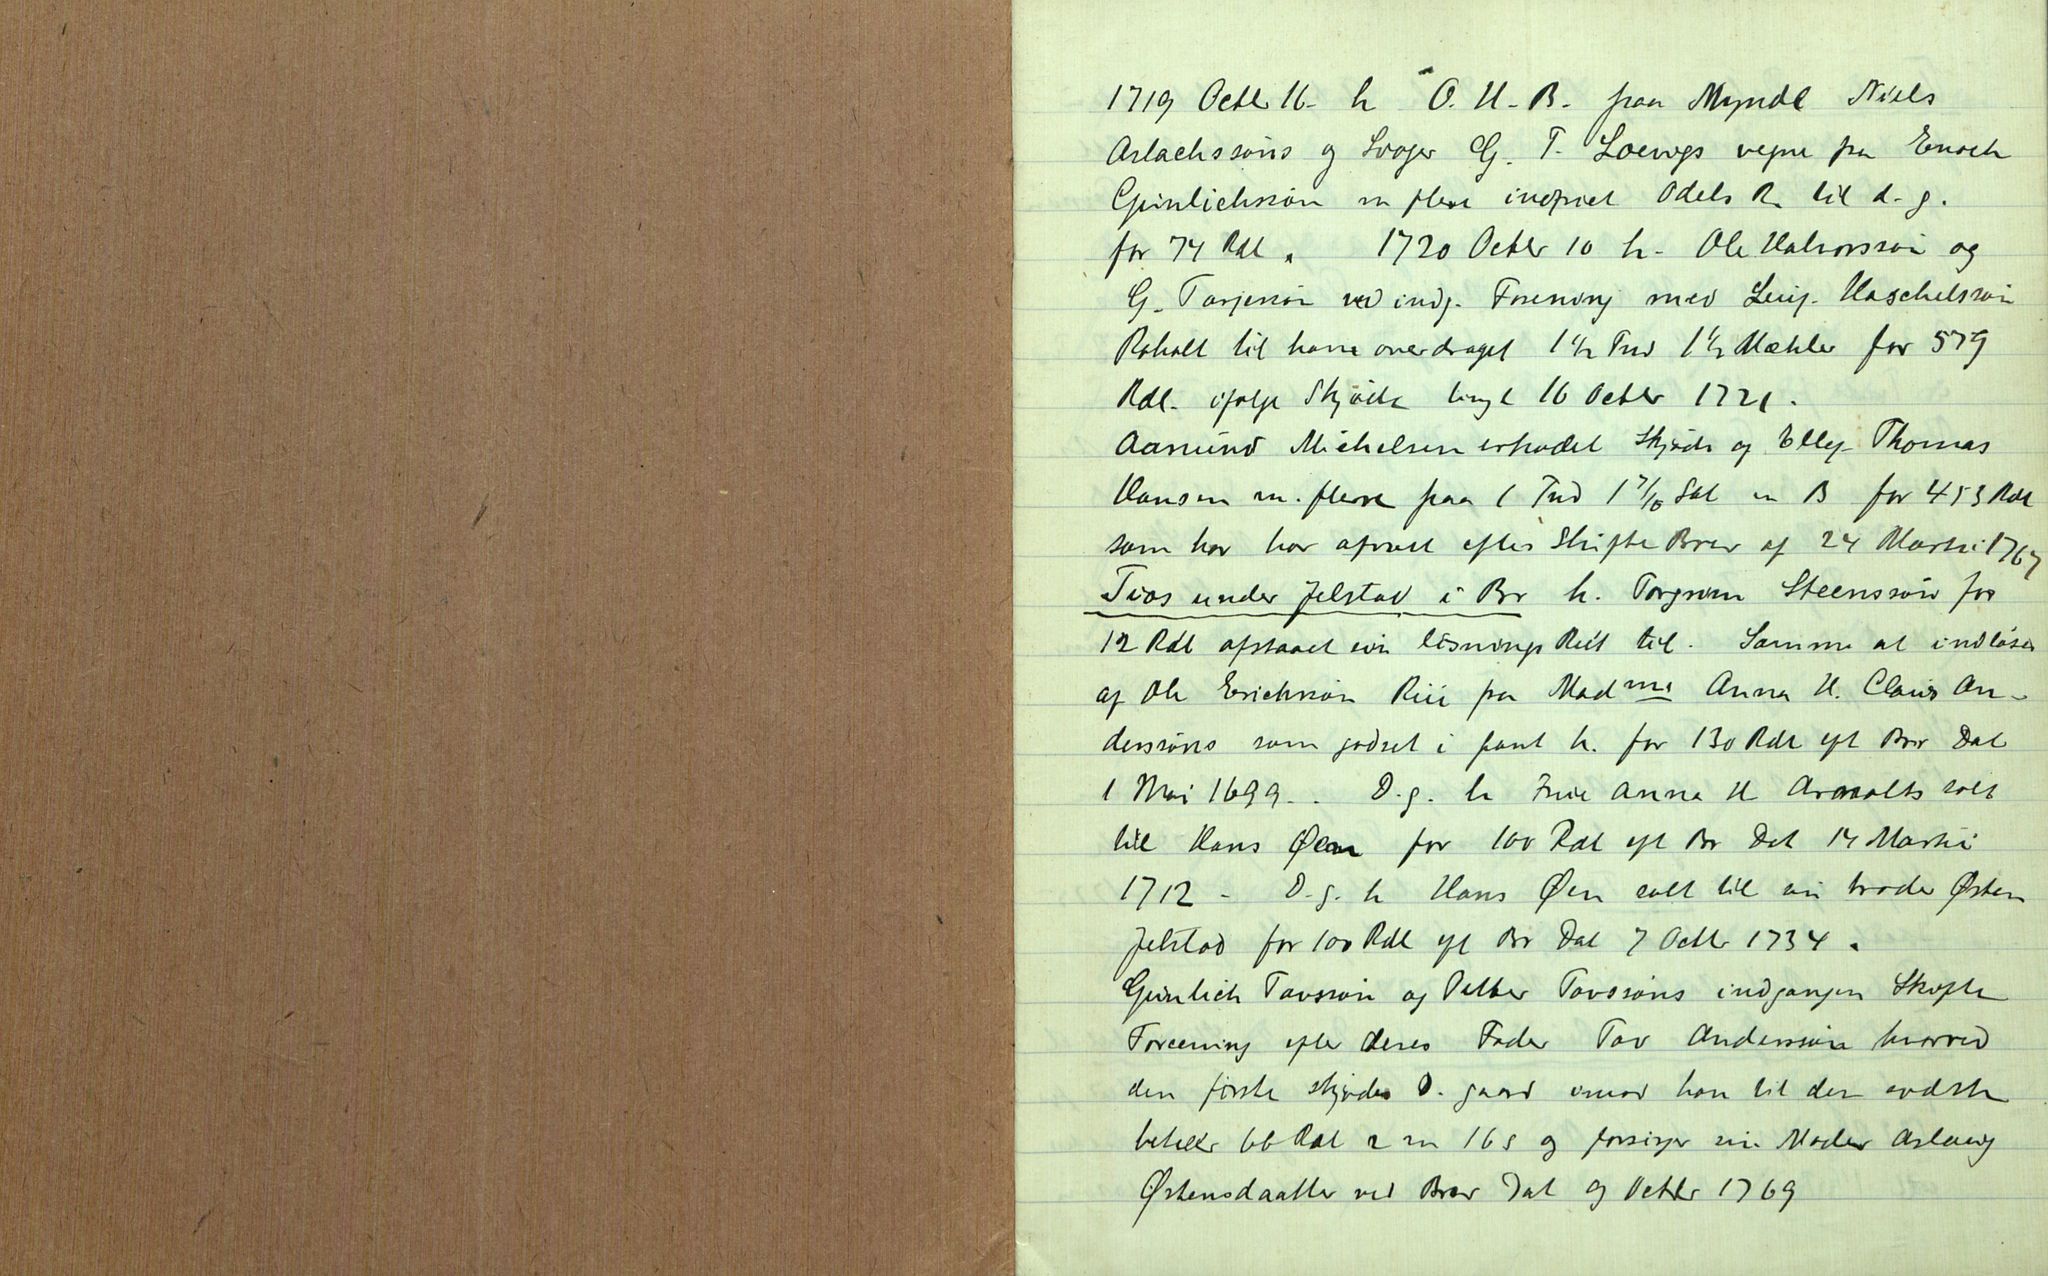 1719 Octbr 16 - h O. H. B. paa Myndl Niels
Aslachssøns og Svoger G. T. Loevigs vegne fra Enoch
Gunlichssøn m flere indfriet Odels R. til d. g.
for 74 Rdl. 1720 Octbr 10 h. Ole Halvorssøn og
G. Tarjessøn ved indg. Forening med Leiij. Haschelssøn
Roholt til ham overdraget 1½ Tnd 1½ Mæhler for 579
Rdl. ifølge Skjøde tingl 16 Octbr 1721.
Aamund Michelsen erholdet Skjøde af Ellef Thomas
Hansen m. flere paa 1 Tnd 1 7/10 Sdl m B for 453 Rdl
som har har efter Skifte Brev af 24 Martii 1767
Tios under Jelstad i Br h. Torgrim Steenssøn for
12 Rdl afstaaet sin løsnings Rett til. Samme at indløses
af Ole Erichssøn Rui fra Madme Anna H. Claus An-
derssøns som godset i pant h. for 130 Rdl eft Brev Dat
1 Mai 1699. D. g. h Frue Anna H Arnolts solt
til Hans Øen for 100 Rdl eft Br Dat 14 Martii
1712 - D. g. h Hans Øen solt til sin broder Østen
Jelstad for 100 Rdl eft Br Dat 7 Octbr 1734.
Gunlich Tovssøn og Petter Tovssøns indgangen Skifte
Foreening efter deres Fader Tov Anderssøn hvorved
den første skjøder D. gaard imod han til den sidste
betaler 66 Rdl 2 m 16 s og forsørger sin Moder Aslaug
Østensdaatter ved Brev Dat 9 Octbr 1769